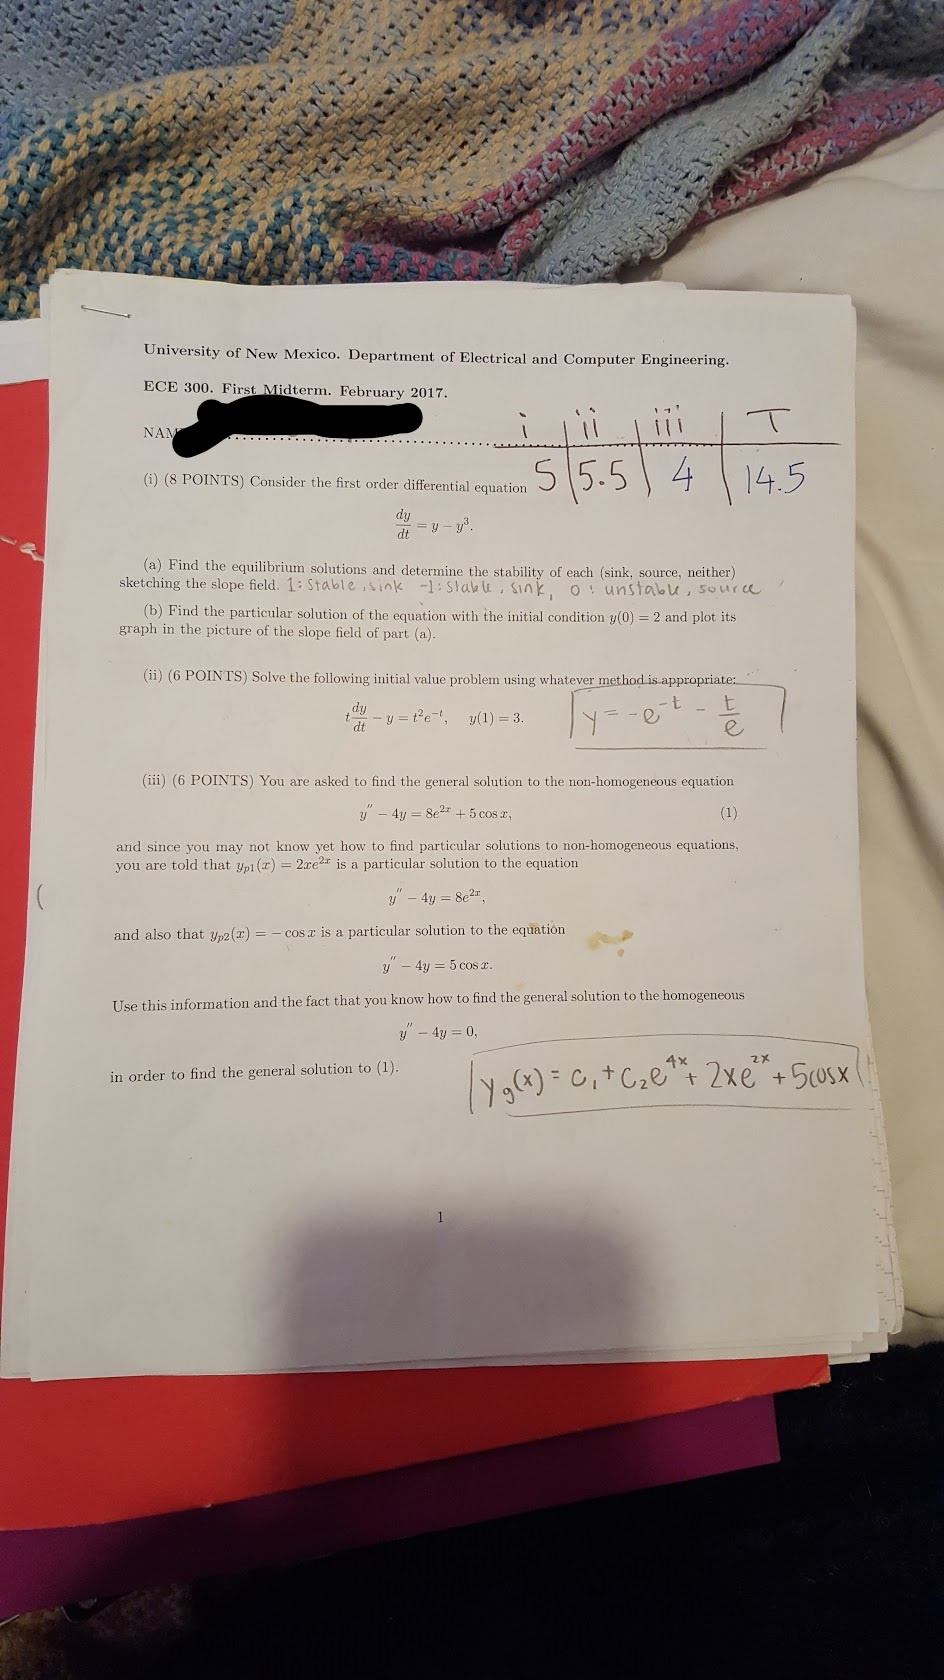 University of New Mexico. Department of Electrical and Computer Engineering.
ECE 300. First Midterm. February 2017.
NAM
i ii iii T
5 5.5 4 14.5
(i) (8 POINTS) Consider the first order differential equation
dy/dt = y − y³.
(a) Find the equilibrium solutions and determine the stability of each (sink, source, neither)
sketching the slope field. 1: Stable, sink -1: Stable, sink, 0: unstable, source
(b) Find the particular solution of the equation with the initial condition y(0) = 2 and plot its
graph in the picture of the slope field of part (a).
(ii) (6 POINTS) Solve the following initial value problem using whatever method is appropriate:
t dy/dt − y = t²e⁻ᵗ, y(1) = 3.
y = -e⁻ᵗ - t/e
(iii) (6 POINTS) You are asked to find the general solution to the non-homogeneous equation
y'' − 4y = 8e²ˣ + 5 cos x, (1)
and since you may not know yet how to find particular solutions to non-homogeneous equations,
you are told that yp1(x) = 2xe²ˣ is a particular solution to the equation
y'' − 4y = 8e²ˣ,
and also that yp2(x) = − cos x is a particular solution to the equation
y'' − 4y = 5 cos x.
Use this information and the fact that you know how to find the general solution to the homogeneous
y'' − 4y = 0,
in order to find the general solution to (1).
yg(x) = c₁ + c₂e⁴ˣ + 2xe²ˣ + 5cosx
1